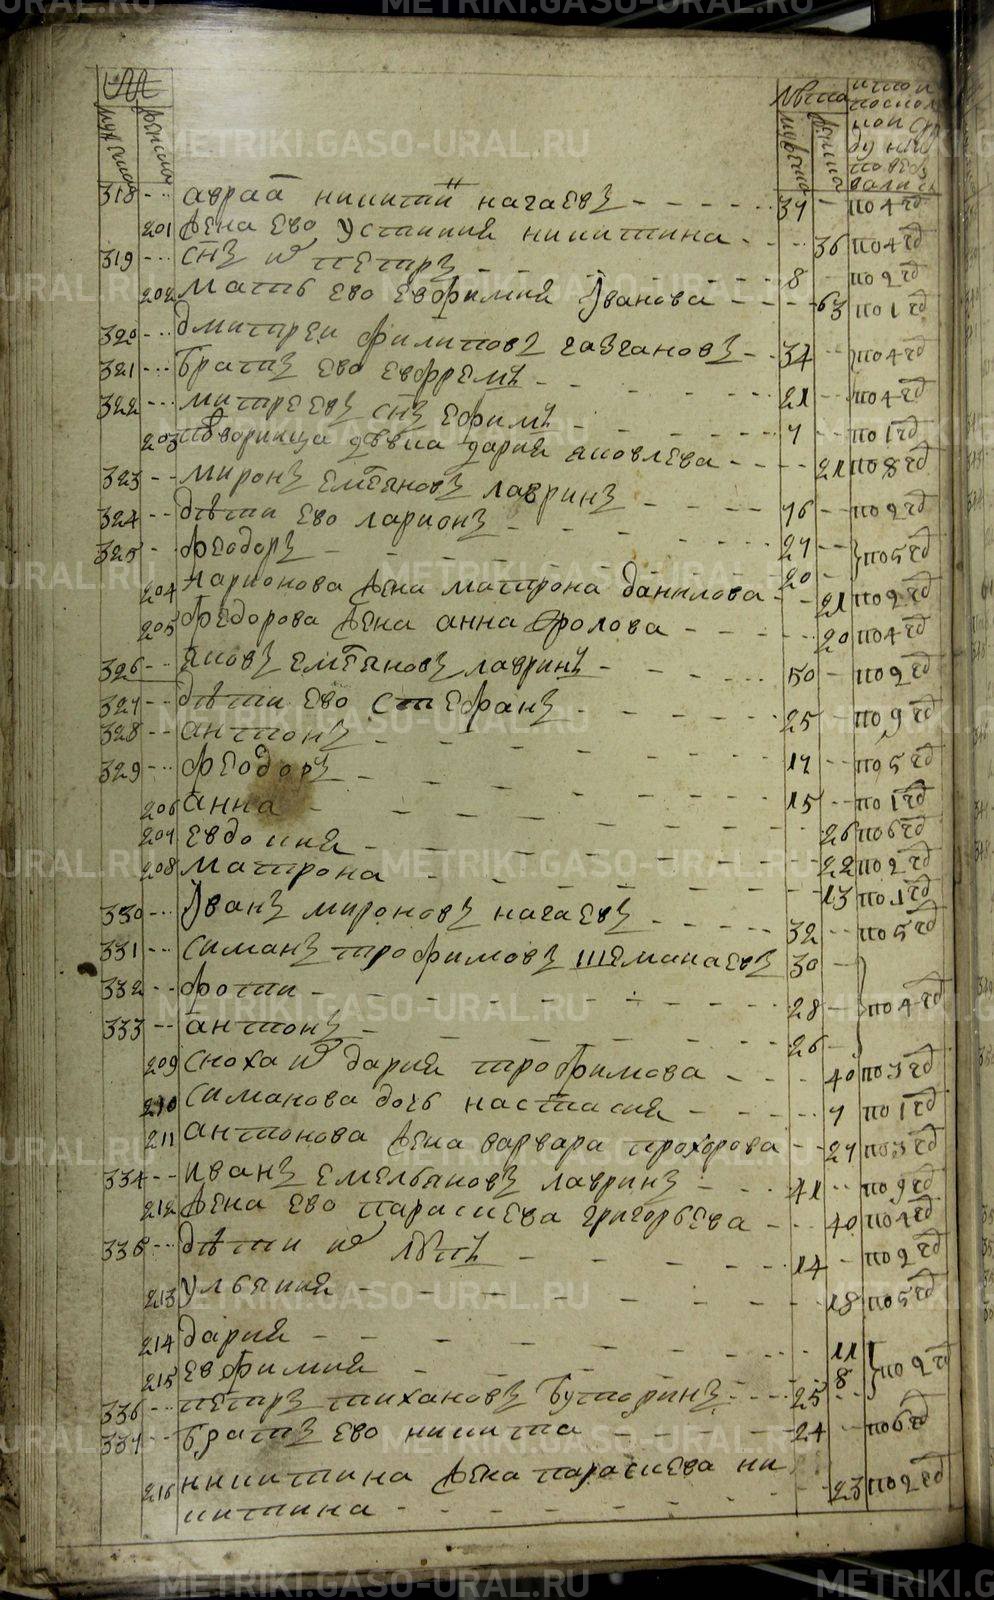 METRIKI.GASO-URAL.RU
№
мужеска женска
лѣта мужеска женска
318 авраа никитин начаевъ 34 по 4 гд
201 жена ево устиния никитина 36 по 4 гд
319 снъ их петръ 8 по 2 гд
202 мать ево евфимия Iванова 63 по 1 гд
320 дмитреи филиповъ газгановъ 34 по 4 гд
321 братъ ево евфремъ 21 по 4 гд
322 митреевъ снъ ефимъ 7 по 1 гд
203 дѣвка дария яковлева 21 по 8 гд
323 миронъ емеляновъ лавринъ 76 по 2 гд
324 дѣти ево ларионъ 27
325 феодоръ 20 по 5 гд
204 ларионова жена матрона данилова 21 по 2 гд
205 федорова жена анна фролова 20 по 4 гд
326 яковъ емеляновъ лавринъ 50 по 2 гд
327 дѣти ево стефанъ 25 по 9 гд
328 антонъ 17 по 5 гд
329 феодоръ 15 по 1 гд
206 анна 26 по 6 гд
207 евдокия 22 по 2 гд
208 матрона 13 по 1 гд
330 Iванъ мироновъ начаевъ 32 по 5 гд
331 симанъ трофимовъ шемякаевъ 30
332 фоти 28 по 4 гд
333 антонъ 26
209 сноха их дария трофимова 40 по 3 гд
210 симанова дочь настасия 7 по 1 гд
211 антонова жена варвара прохорова 27 по 3 гд
334 иванъ емельяновъ лавринъ 41 по 9 гд
212 жена ево параскева григорьева 40 по 4 гд
335 дѣти их 14 по 2 гд
213 ульяния 18 по 5 гд
214 дария 11
215 евфимия 8 по 2 гд
336 петръ тихановъ буторинъ 25
337 братъ ево никита 24 по 6 гд
216 никитина жена параскева ни
китина 23 по 2 гд